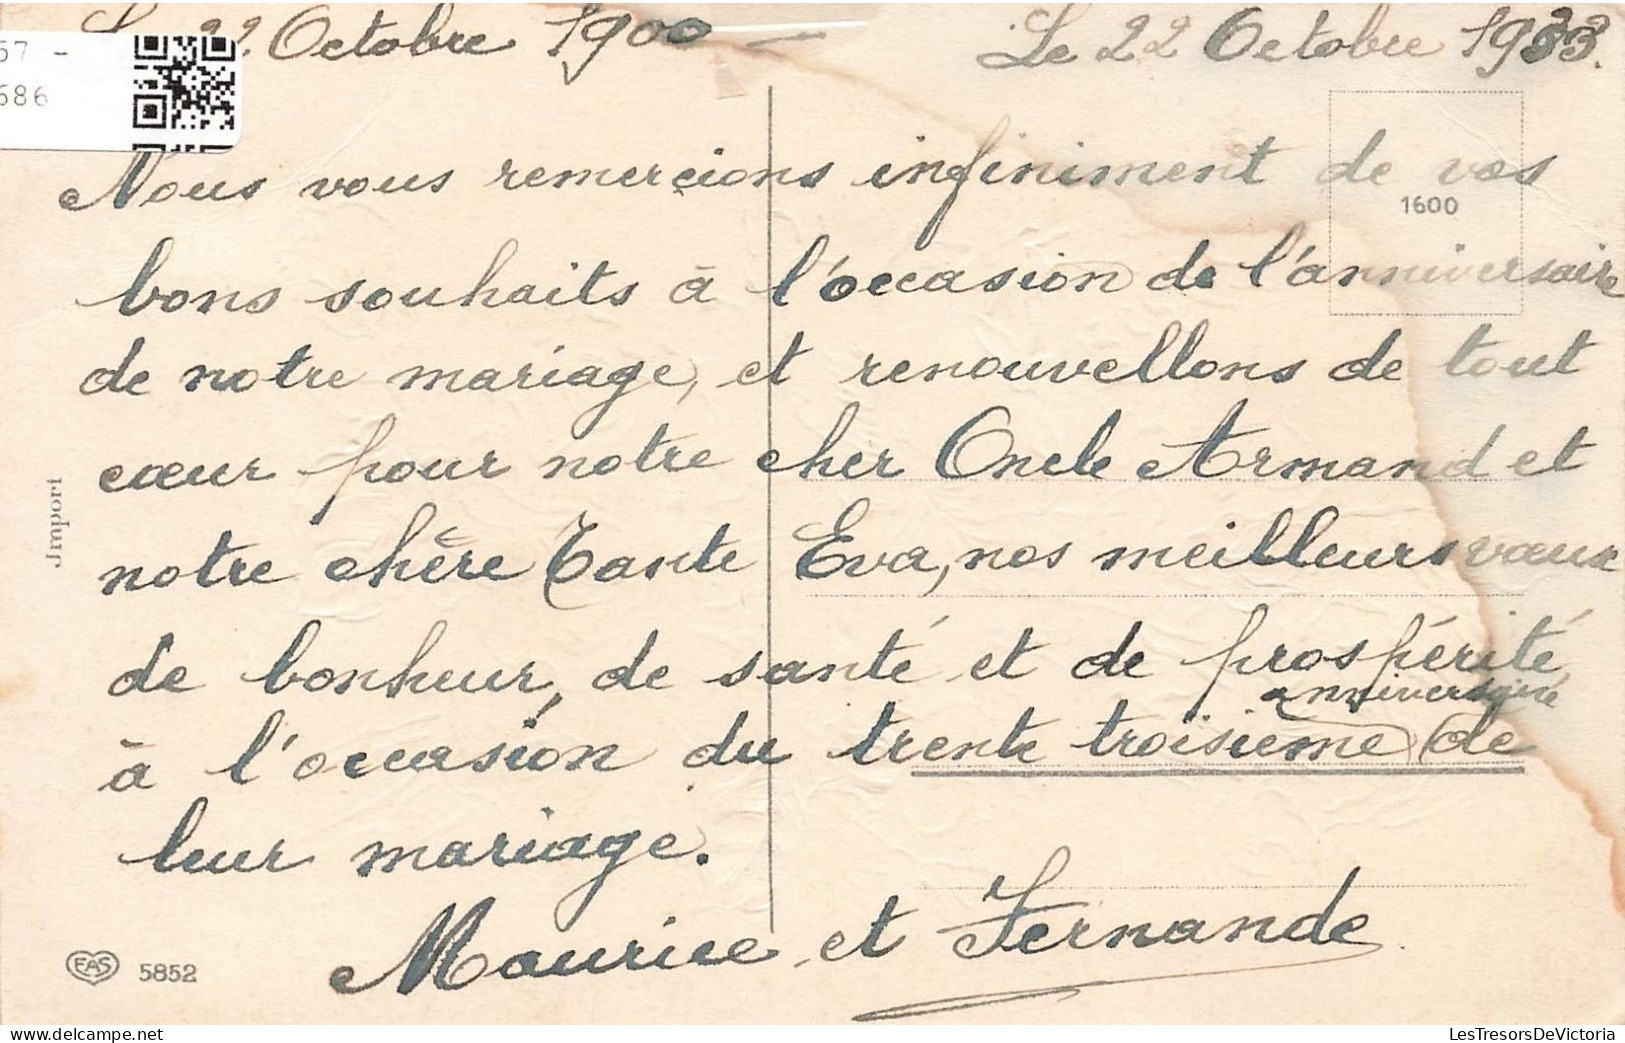 Le 22 Octobre 1900 — Le 22 Octobre 1933.
57 -
686
Nous vous remercions infiniment de vos
1600
bons souhaits à l'occasion de l'anniversaire
de notre mariage, et renouvellons de tout
cœur pour notre cher Oncle Armand et
notre chère Tante Eva, nos meilleurs vœux
de bonheur, de santé et de prospérité,
anniversaire
à l'occasion du trente troisième de
leur mariage.
Maurice et Fernande
Jmport
EAS 5852
LesTresorsDeVictoria